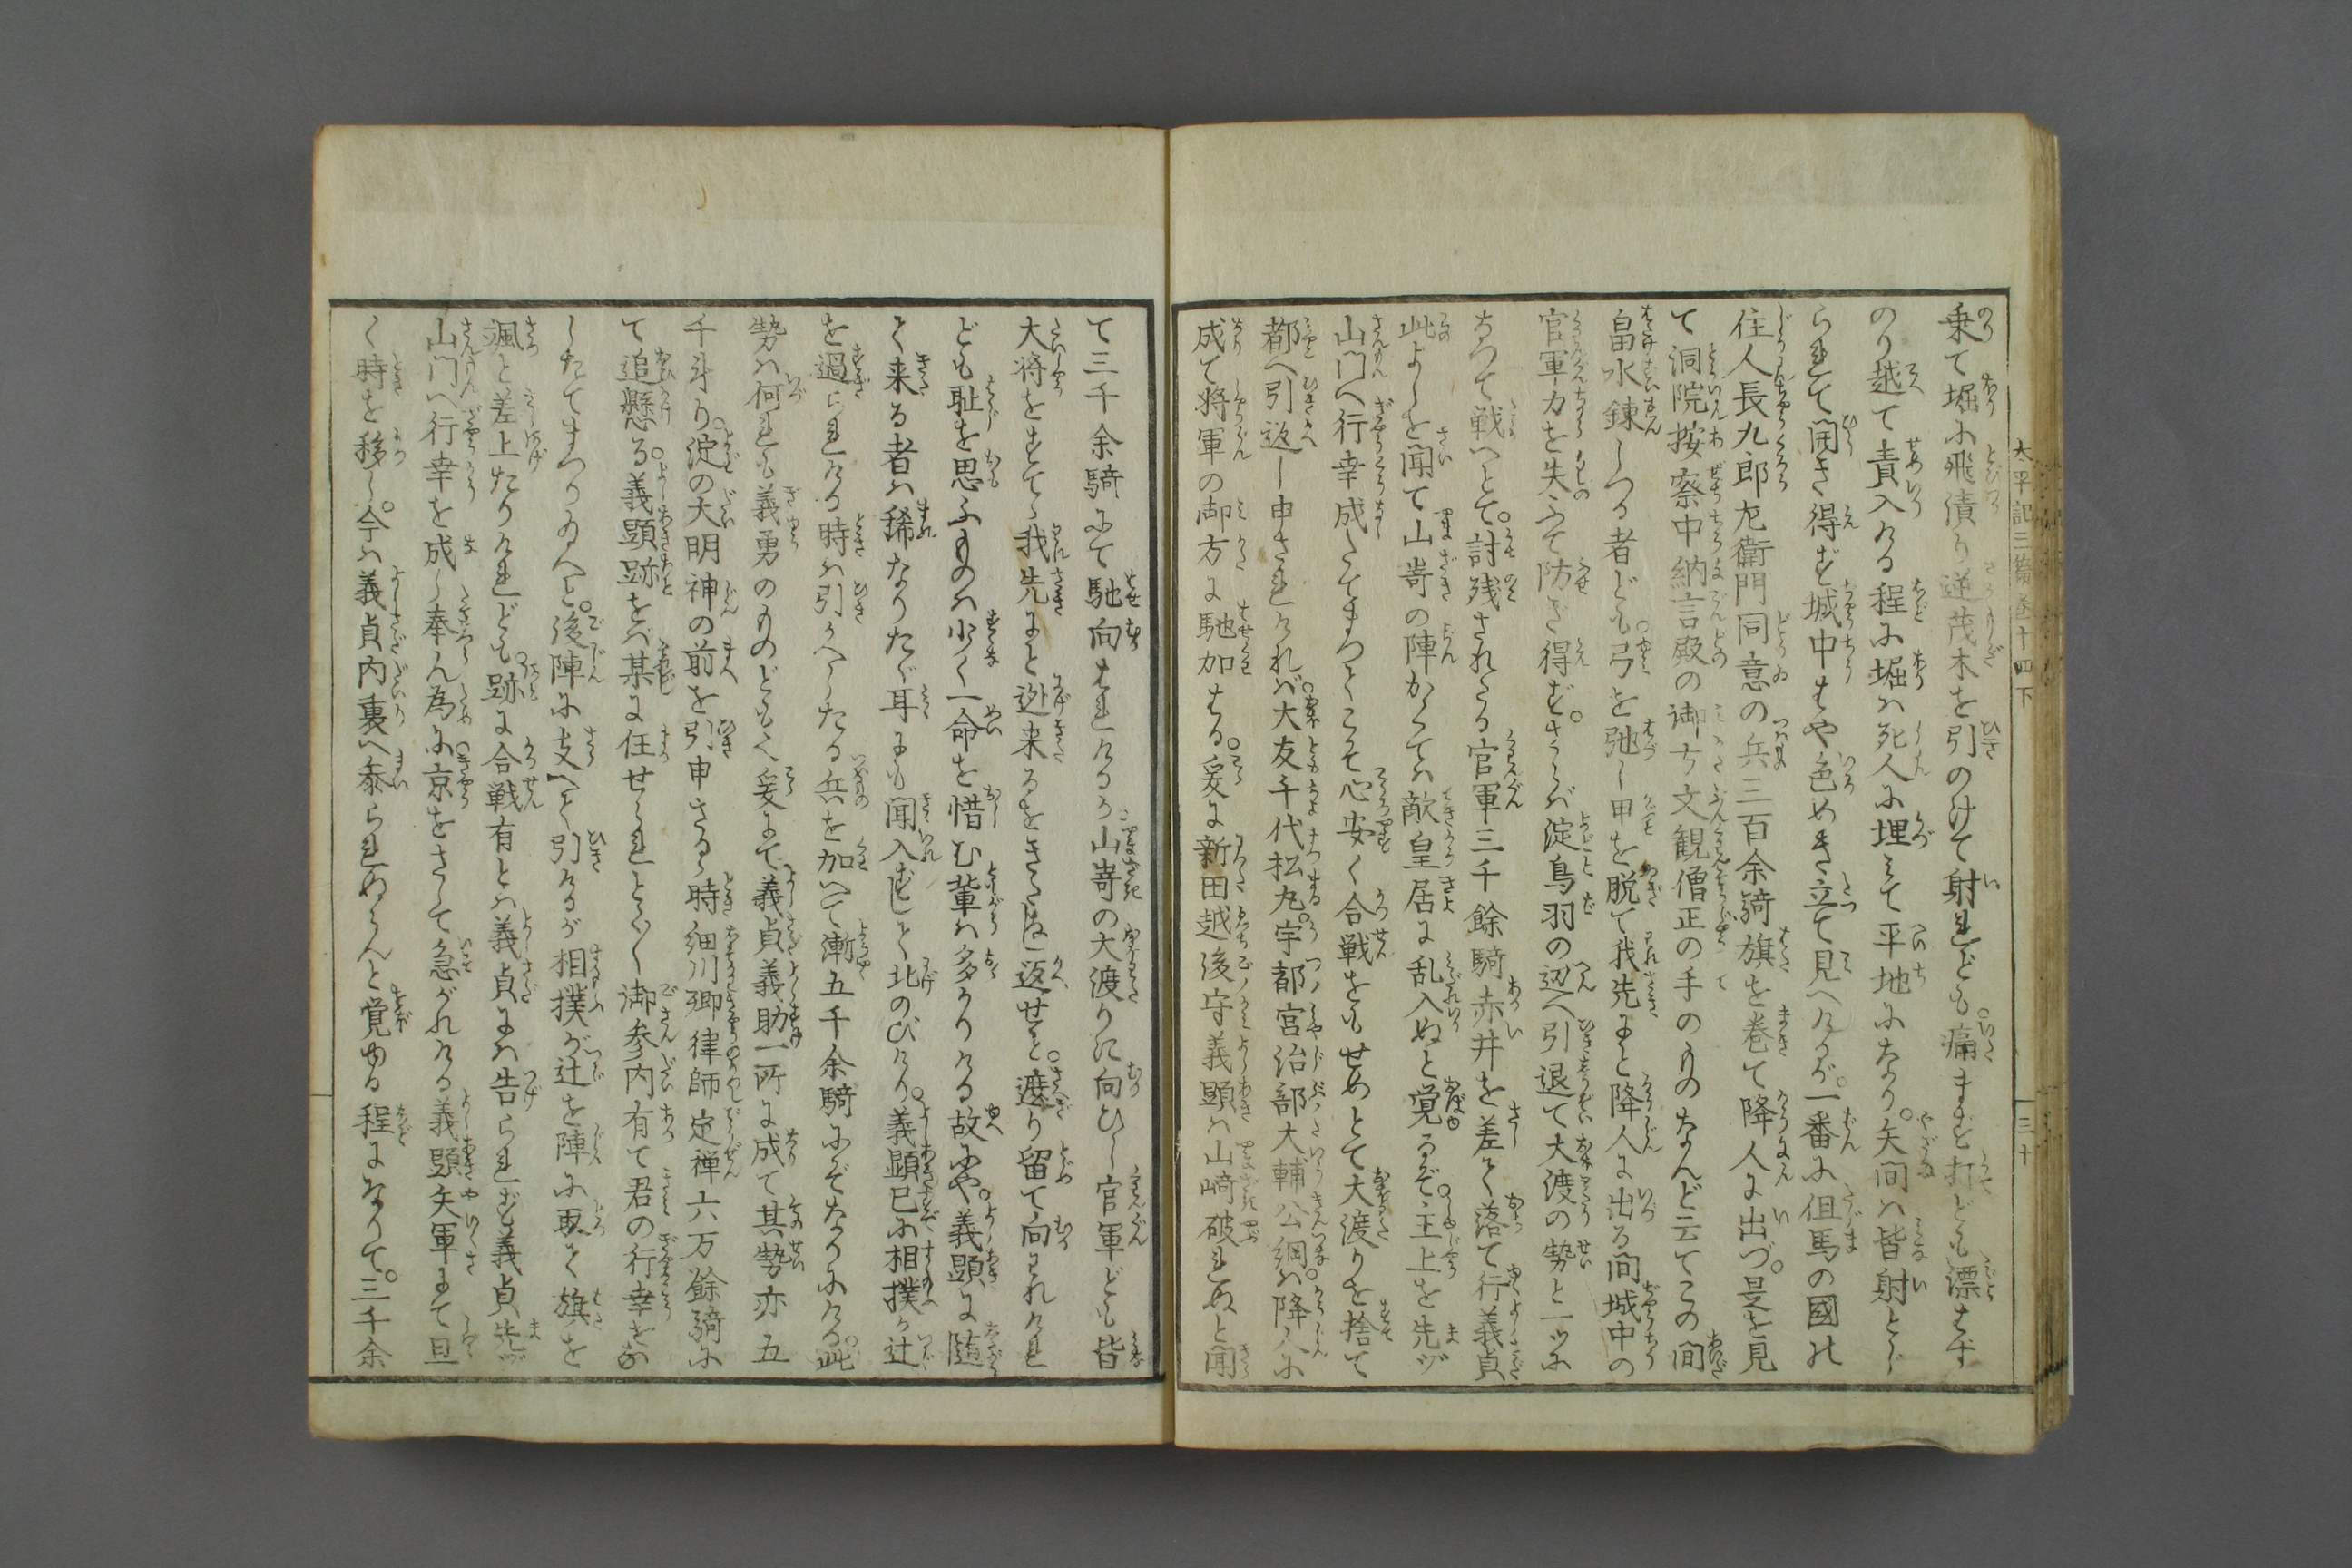 乗て堀に飛漬り逆茂木を引のけて射れども痛まず打ども漂はず
のり越て責入ける程に堀は死人に埋みて平地になり。矢間は皆射とぢ
られて開き得ず城中はや色めき立て見へけるが。一番に但馬の國の
住人長九郎左衛門同意の兵三百余騎旗を巻て降人に出づ。是を見
て洞院按察中納言殿の御方文観僧正の手のものなんど云てこの間
畠水練しつる者ども。弓を弛し甲を脱て我先にと降人に出る間城中の
官軍力を失ふて防ぎ得ず。さらば淀鳥羽の辺へ引退て大渡の勢と一ツに
なつて戦へとて。討残されたる官軍三千餘騎赤井を差て落て行義貞
此よしを聞て山嵜の陣かくては敵皇居に乱入ぬと覚るぞ。主上を先ヅ
山門へ行幸成したてまつてこそ心安く合戦をもせめとて大渡りを捨て
都へ引返し申されければ。大友千代松丸。宇都宮治部大輔公綱は。降人に
成て将軍の御方に馳加はる。爰に新田越後守義顕は山崎破れぬと聞
太平記三篇巻十四下
三十
て三千余騎にて馳向はれけるが。山嵜の大渡りに向ひし官軍ども皆
大将をすてゝ我先にと迯来るをきたなし返せと。遮り留て向はれけれ
ども耻を思ふものは少く一命を惜む輩は多かりける故にや。義顕に随
て来る者は稀なりたゞ耳にも聞入ずして北のびけり。義顕已に相撲が辻
を過られける時は引かへしたる兵を加へて漸五千余騎にぞなりにける。此
勢は何れも義勇のものどもなり爰にて義貞義助一所に成て其勢亦五
千斗り。淀の大明神の前を引申さるゝ時細川卿律師定禅六万餘騎に
て追懸る。義顕跡をば某に任せられとく〱御参内有て君の行幸をな
したてまつりのへと。後陣に支へて引けるが相撲が辻を陣に取て旗を
颯と差上たりけれども。跡に合戦有とは義貞には告られず義貞先ヅ
山門へ行幸を成し奉ん為に。京をさして急がれける義顕矢軍にて且
く時を移し。今は義貞内裏へ参られぬらんと覚ゆる程になりて。三千余